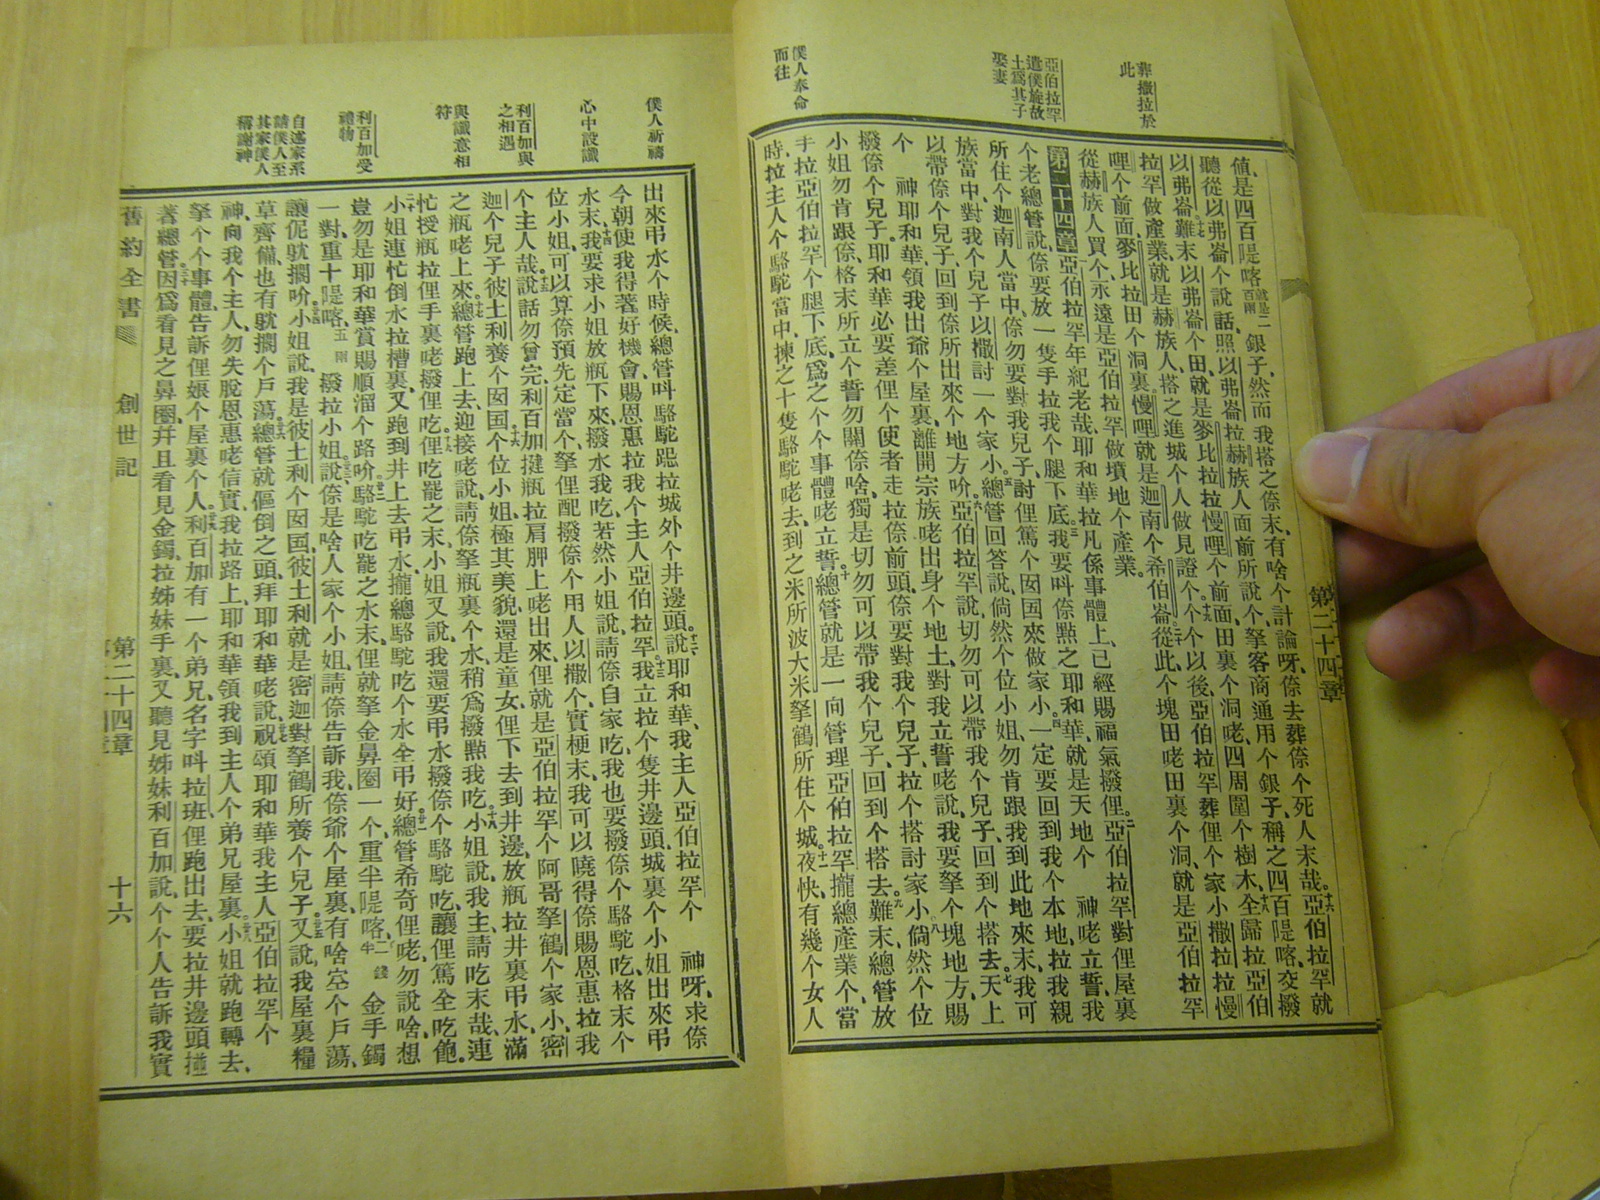 葬撒拉於
此
亞伯拉罕
遣僕旋故
土爲其子
娶妻
僕人奉命
而往
値、是四百隄喀就是二百兩銀子、然而我搭之倷末、有啥个計論呀、倷去葬倷个死人末哉。十六亞伯拉罕就
聽從以弗崙个說話、照以弗崙拉赫族人面前所說个、拏客商通用个銀子、稱之四百隄喀、交撥
以弗崙。十七難末以弗崙个田、就是麥比拉拉慢哩个前面、田裏个洞咾四周圍个樹木、十八全歸拉亞伯
拉罕做產業、就是赫族人搭之進城个人做見證个。十九个个以後、亞伯拉罕葬俚个家小撒拉拉慢
哩个前面、麥比拉田个洞裏、慢哩就是迦南个希伯崙。二十從此个塊田咾田裏个洞、就是亞伯拉罕
從赫族人買个、永遠是亞伯拉罕做墳地个產業。
第二十四章亞伯拉罕年紀老哉、耶和華拉凡係事體上、已經賜福氣撥俚。二亞伯拉罕對俚屋裏
个老總管說、倷要放一隻手拉我个腿下底。三我要呌倷㸃之耶和華、就是天地个 神咾立誓、我
所住个迦南人當中、倷勿要對我兒子討俚篤个囡囝來做家小。四一定要回到我个本地拉我親
族當中、對我个兒子以撒討一个家小。五總管回答說、倘然个位小姐、勿肯跟我到此地來末、我可
以帶倷个兒子、回到倷所出來个地方吤。六亞伯拉罕說、切勿可以帶我个兒子、回到个搭去。七天上
个 神耶和華領我出爺个屋裏、離開宗族咾出身个地土、對我立誓咾說、我要拏个塊地方、賜
撥倷个兒子。耶和華必要差俚个使者走拉倷前頭、倷要對我个兒子、拉个搭討家小。八倘然个位
小姐勿肯跟倷、格末所立个誓勿關倷啥、獨是切勿可以帶我个兒子、回到个搭去。九難末總管放
手拉亞伯拉罕个腿下底、爲之个个事體咾立誓。十總管就是一向管理亞伯拉罕攏總產業个、當
時、拉主人个駱駝當中、揀之十隻駱駝咾去、到之米所波大米拏鶴所住个城。十一夜快、有幾个女人
第二十四章
僕人祈禱
心中設讖
利百加與
之相遇
與讖意相
符
利百加受
禮物
自述家系
請僕人至
其家僕人
稱謝神
出來弔水个時候、總管呌駱駝跽拉城外个井邊頭、十二說、耶和華、我主人亞伯拉罕个 神呀、求倷
今朝使我得著好機會、賜恩惠拉我个主人亞伯拉罕。十三我立拉个隻井邊頭、城裏个小姐出來弔
水末、十四我要求小姐放瓶下來、撥水我吃、若然小姐說、請倷自家吃、我也要撥倷个駱駝吃、格末个
位小姐、可以算倷預先定當个、拏俚配撥倷个用人以撒个、實梗末、我可以曉得倷賜恩惠拉我
个主人哉。十五說話勿曾完、利百加揵瓶拉肩胛上咾出來、俚就是亞伯拉罕个阿哥拏鶴个家小、密
迦个兒子彼土利養个囡囝。十六个位小姐極其美貌、還是童女、俚下去到井邊、放瓶拉井裏弔水、滿
之瓶咾上來。十七總管跑上去、迎接咾說、請倷拏瓶裏个水、稍爲撥㸃我吃。十八小姐說、我主、請吃末哉、連
忙授瓶拉俚手裏咾撥俚吃。十九俚吃罷之末、小姐又說、我還要弔水撥倷个駱駝吃、讓俚篤全吃飽。
二十小姐連忙倒水拉槽裏、又跑到井上去弔水、攏總駱駝吃个水全弔好。二一總管希奇俚咾、勿說啥、想
豈勿是耶和華賞賜順溜个路吤。二二駱駝吃罷之水末、俚就拏金鼻圈一个、重半隄喀二錢半金手鐲
一對、重十隄喀、五兩 撥拉小姐。二三說、倷是啥人家个小姐、請倷告訴我、倷爺个屋裏、有啥空个戶蕩、
讓伲躭擱吤。二四小姐說、我是彼土利个囡囝、彼土利就是密迦對拏鶴所養个兒子。二五又說、我屋裏糧
草齊備、也有躭擱个戶蕩。二六總管就傴倒之頭、拜耶和華咾說、二七祝頌耶和華我主人亞伯拉罕个
神、向我个主人、勿失脫恩惠咾信實、我拉路上、耶和華領我到主人个弟兄屋裏。二八小姐就跑轉去、
拏个个事體、告訴俚娘个屋裏个人。二九利百加有一个弟兄、名字呌拉班、俚跑出去、要拉井邊頭揰
著總管。三十因爲看見之鼻圈、幷且看見金鐲拉姊妹手裏、又聽見姊妹利百加說、个个人告訴我實
舊約全書 創世記 第二十四章 十六